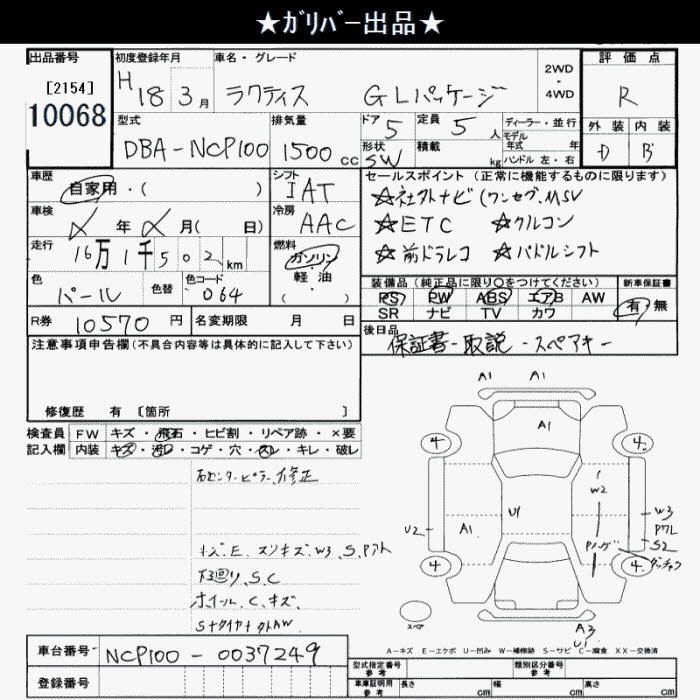 ★ｶﾞﾘﾊﾞｰ出品★
出品番号
[2154]
10068
初度登録年月
H 18 3月
車名・グレード
ラクティス GLパッケージ
2WD
・
4WD
評価点
R
型式
DBA-NCP100
排気量
1500cc
ドア
5
形状
SW
定員
5人
積載
kg
ディーラー・並行
モデル
年式 年
ハンドル 左・右
外装 内装
D B
車歴
自家用・( )
シフト
IAT
セールスポイント (正常に機能するものに限ります)
☆社外ナビ(ワンセグ.MSV
☆ETC ☆クルコン
☆前ドラレコ ☆パドルシフト
車検
年 月( 日)
冷房
AAC
走行
16万1千502km
燃料
ガソリン
・
軽・油
・( )
色
パール
色替
色コード
064
装備品 (純正品に限り○をつけてください)
PS PW ABS エアB AW
SR ナビ TV カワ
新車保証書
有・無
R券 10570円
名変期限 月 日
後日品
保証書-取説-スペアキー
注意事項申告欄(不具合内容等は具体的に記入して下さい)
修復歴 有 [箇所 ]
検査員
記入欄
FW キズ・飛石・ヒビ割・リペア跡・×要
内装 キズ・汚れ・コゲ・穴・スレ・キレ・破レ
右センターピラー修正
キズ.E.スリキズ.W3.S.Pアト
下回り.S.C
ホイール.C.キズ
A1 A1
A1
4 4
W2
U2 A1 U1 W3
S2
4 4
スペア
A3
U1
A-キズ E-エクボ U-凹み W-補修跡 S-サビ C-腐食 XX-交換済
車台番号 NCP100-0037249
登録番号
型式指定番号
参考
類別区分番号
参考
車庫証明用
参考
長さ cm 幅 cm 高さ cm